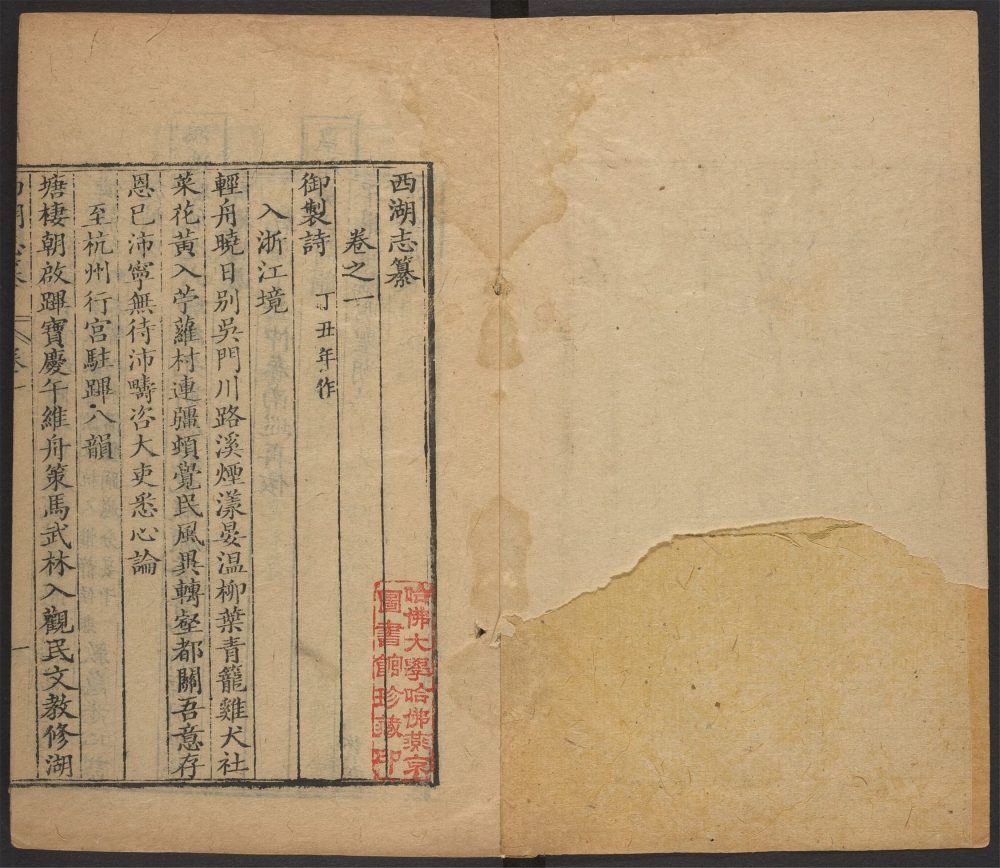 西湖志纂
卷之一
御製詩 丁丑年作
入浙江境
輕舟曉日别吳門川路溪煙漾晏温柳葉青籠雞犬社
菜花黃入苧蘿村連疆頓覺民風異轉壑都關吾意存
恩已沛寧無待沛疇咨大吏悉心論
至杭州行宮駐蹕八韻
塘棲朝啟蹕寶慶午維舟策馬武林入觀民文教修湖
西湖志纂 卷一 一
哈佛大學哈佛燕京
圖書館珍藏印